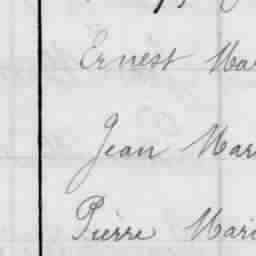 Ernest Mar
Jean Mar
Pierre Mari